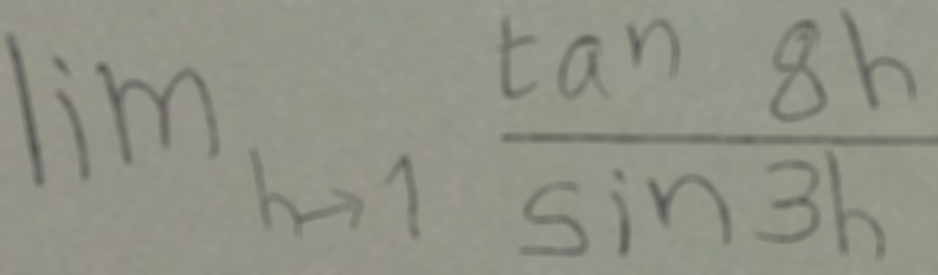 lim h→1 tan 8h / sin 3h